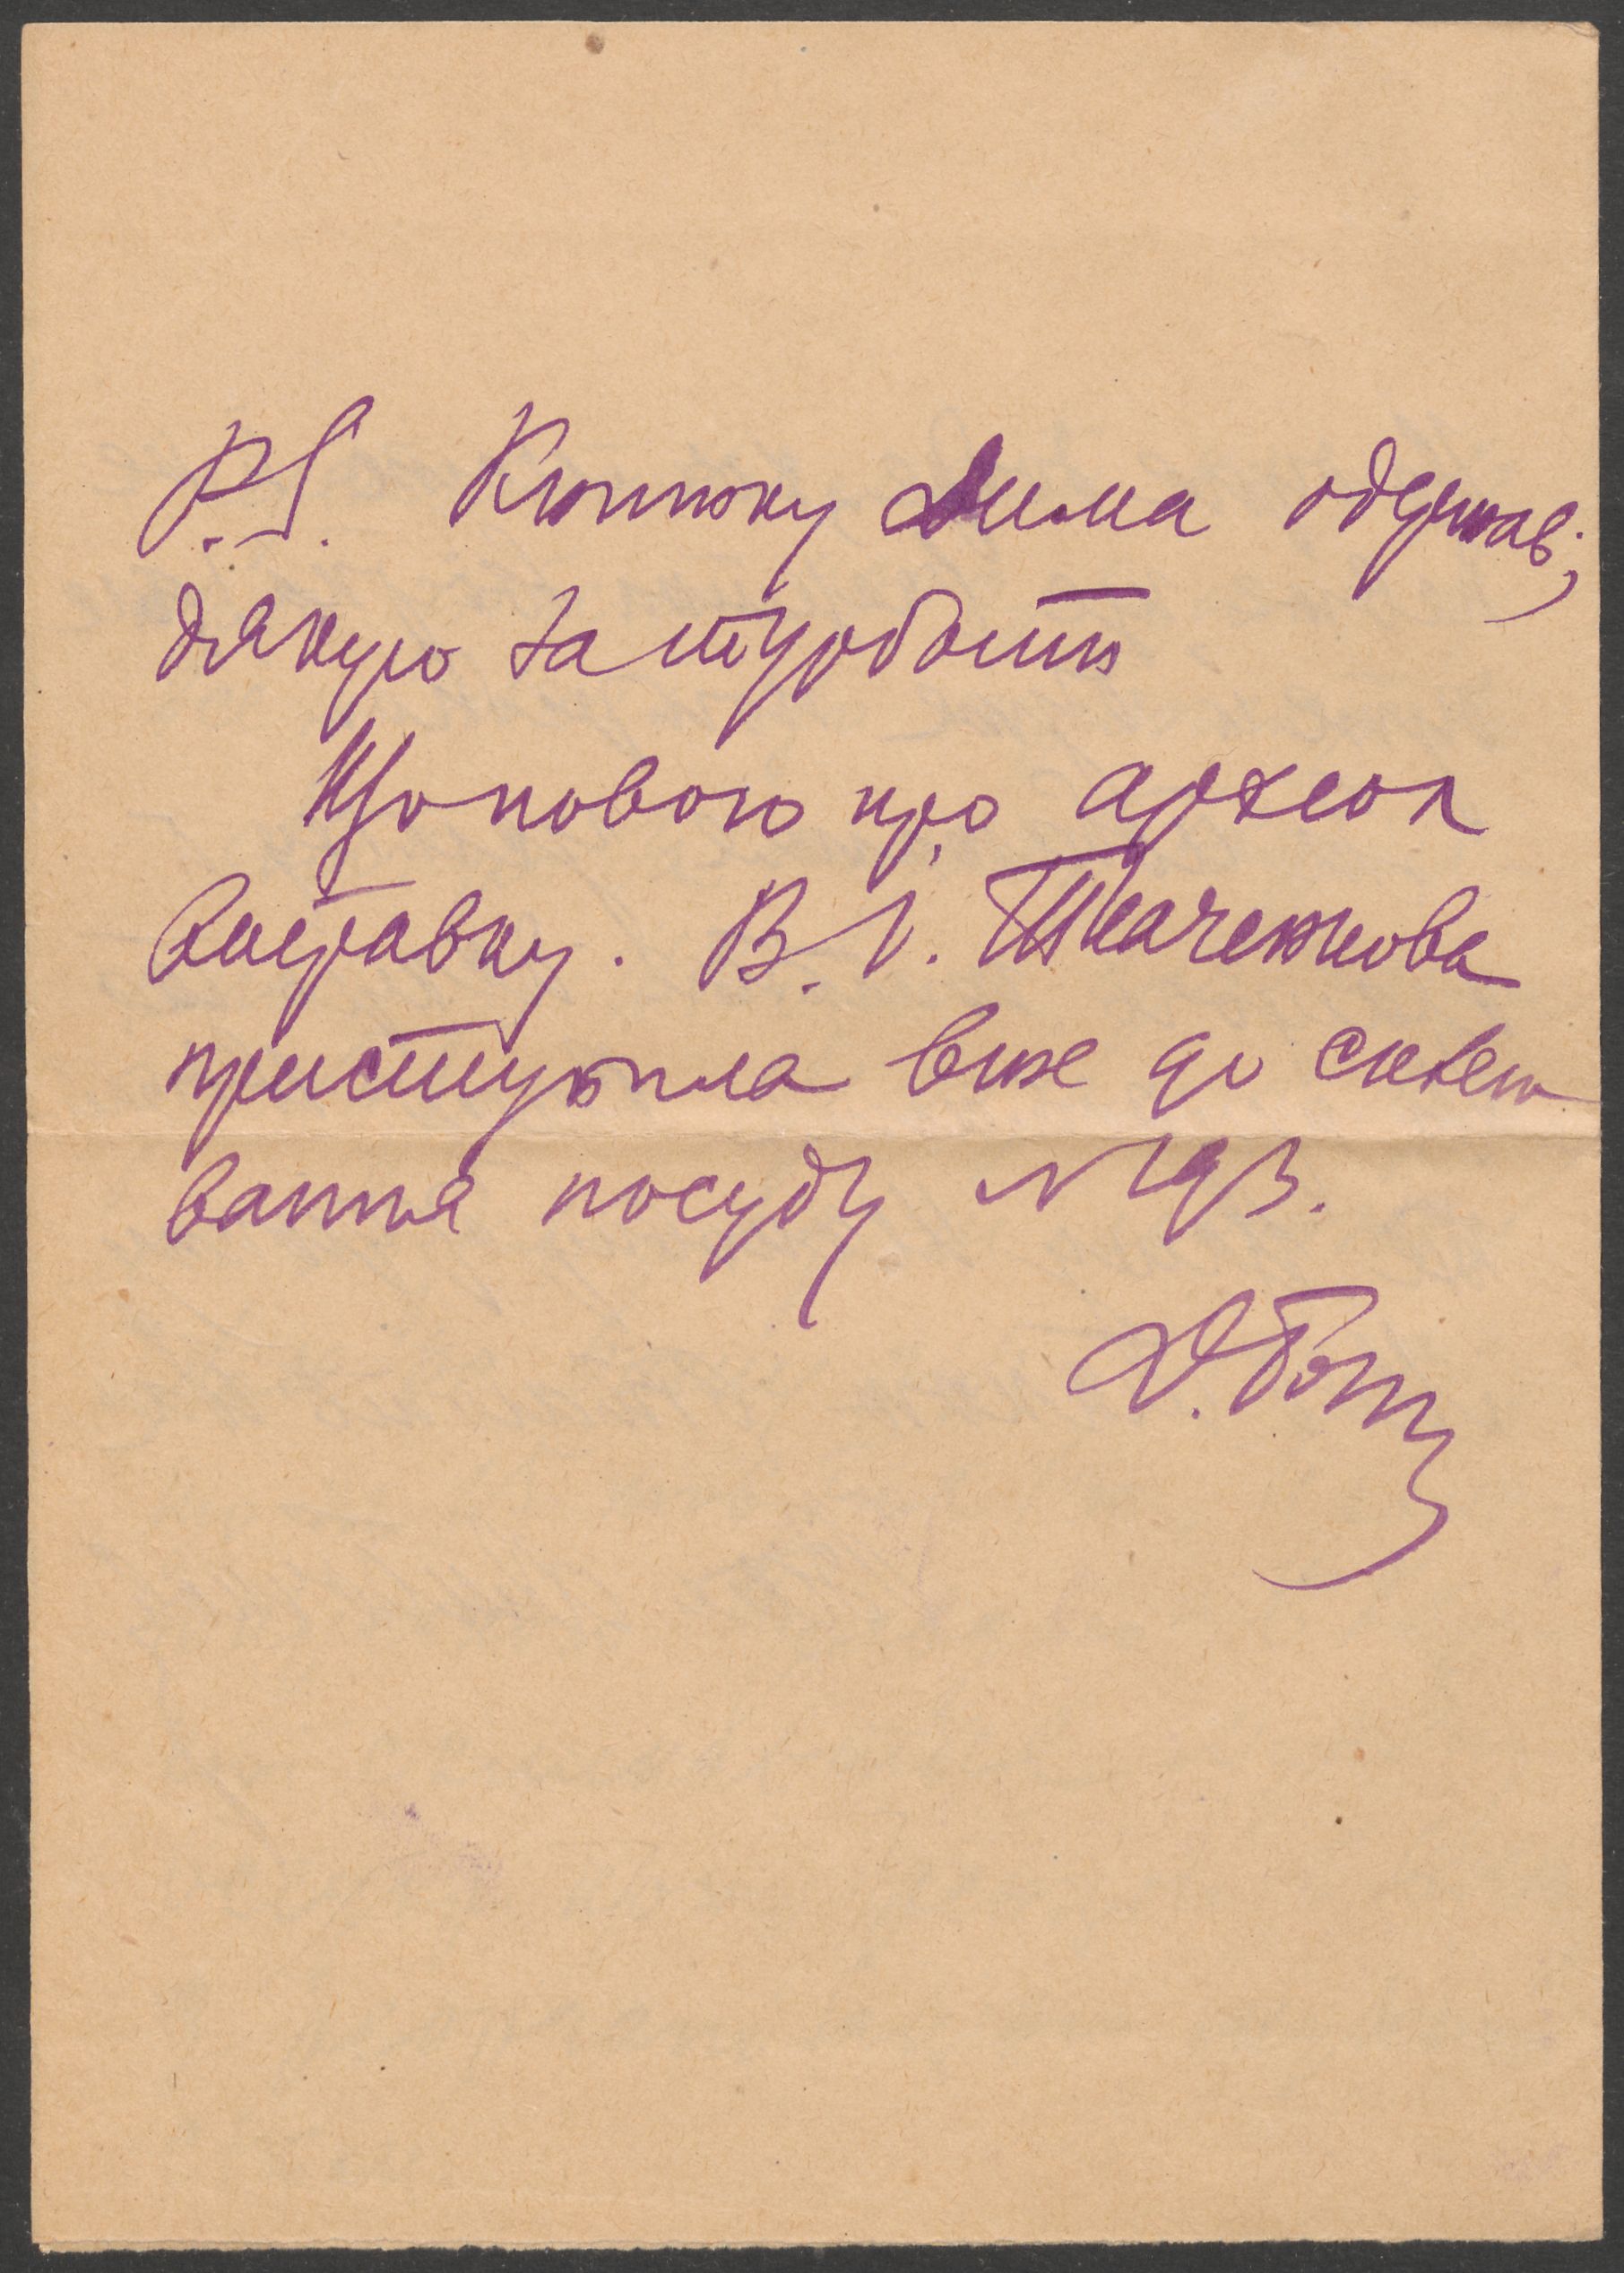 P.S. Книжку Дима одержав;
дякую за турботи
Що нового про археол
виставку. В. І. Ткаченкова
приступила вже до склею
вання посуду